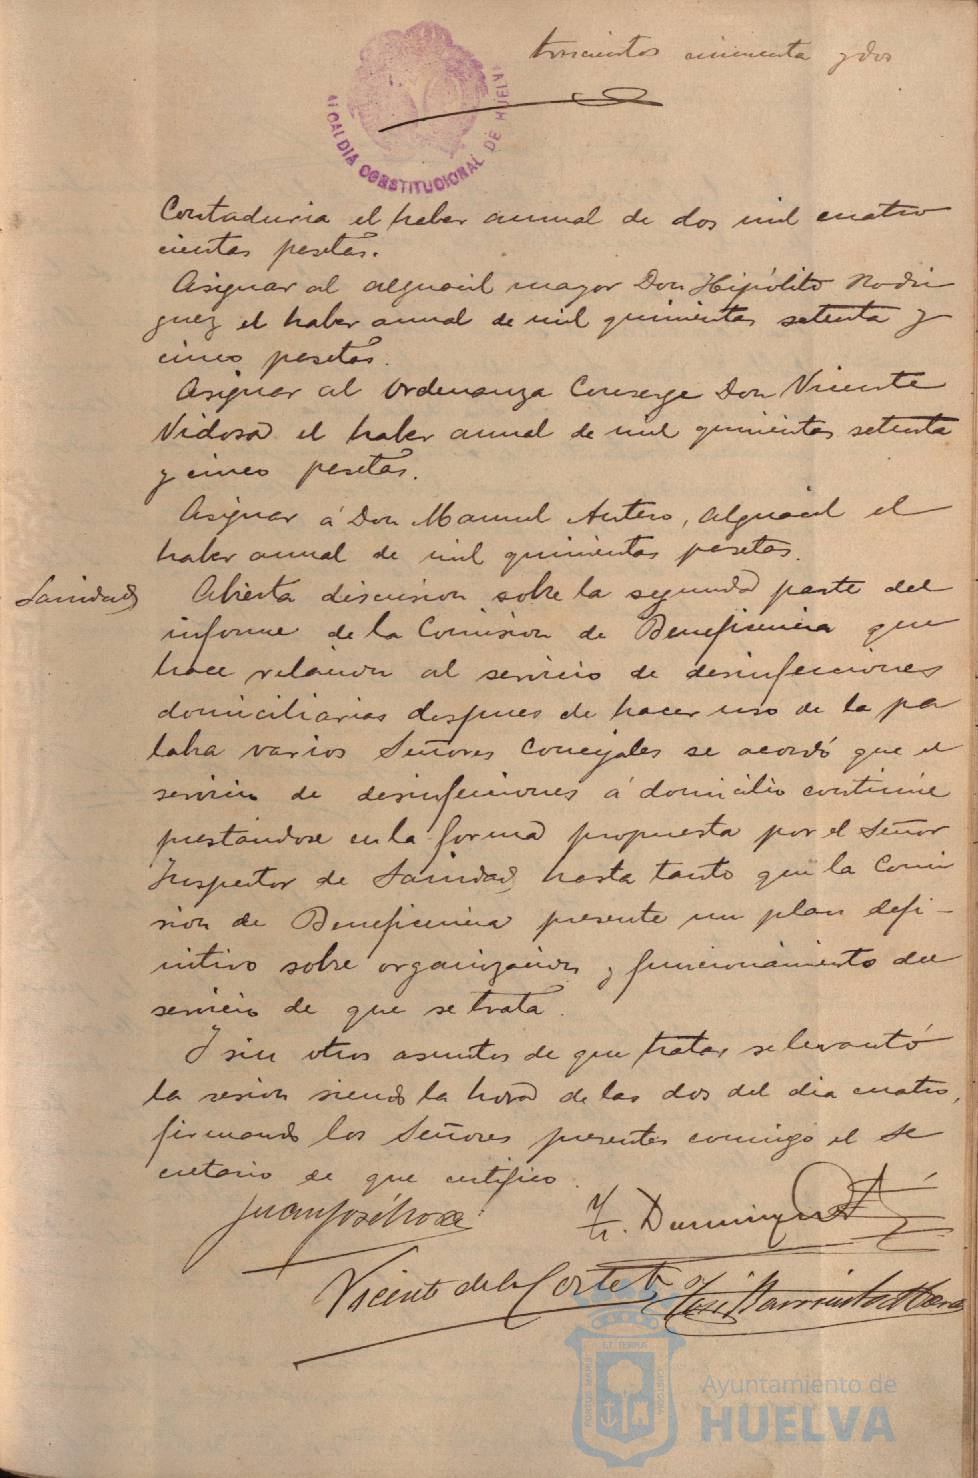 trescientos cincuenta y dos
ALCALDIA CONSTITUCIONAL DE HUELVA
Contaduria el haber anual de dos mil cuatro
cientas pesetas.
Asignar al alguacil mayor Don Hipólito Rodri
guez el haber anual de mil quinientas setenta y
cinco pesetas.
Asignar al Ordenanza Conserge Don Vicente
Vidosa el haber anual de mil quinientas setenta
y cinco pesetas.
Asignar á Don Manuel Antero, alguacil el
haber anual de mil quinientas pesetas.
Sanidad
Abierta discusion sobre la segunda parte del
informe de la Comision de Beneficencia que
hace relacion al servicio de desinfecciones
domiciliarias despues de hacer uso de la pa
labra varios Señores Concejales se acordó que el
servicio de desinfecciones á domicilio continúe
prestandose en la forma propuesta por el Señor
Inspector de Sanidad hasta tanto que la Comi
sion de Beneficencia presente un plan defi-
nitivo sobre organizacion y funcionamiento del
servicio de que se trata.
Y sin otros asuntos de que tratar se levantó
la sesion siendo la hora de las dos del dia cuatro,
firmando los Señores presentes conmigo el Se
cretario de que certifico.
Juan José
F. Dominguez
Vicente de la Corte
José Barrientos
Ayuntamiento de
HUELVA